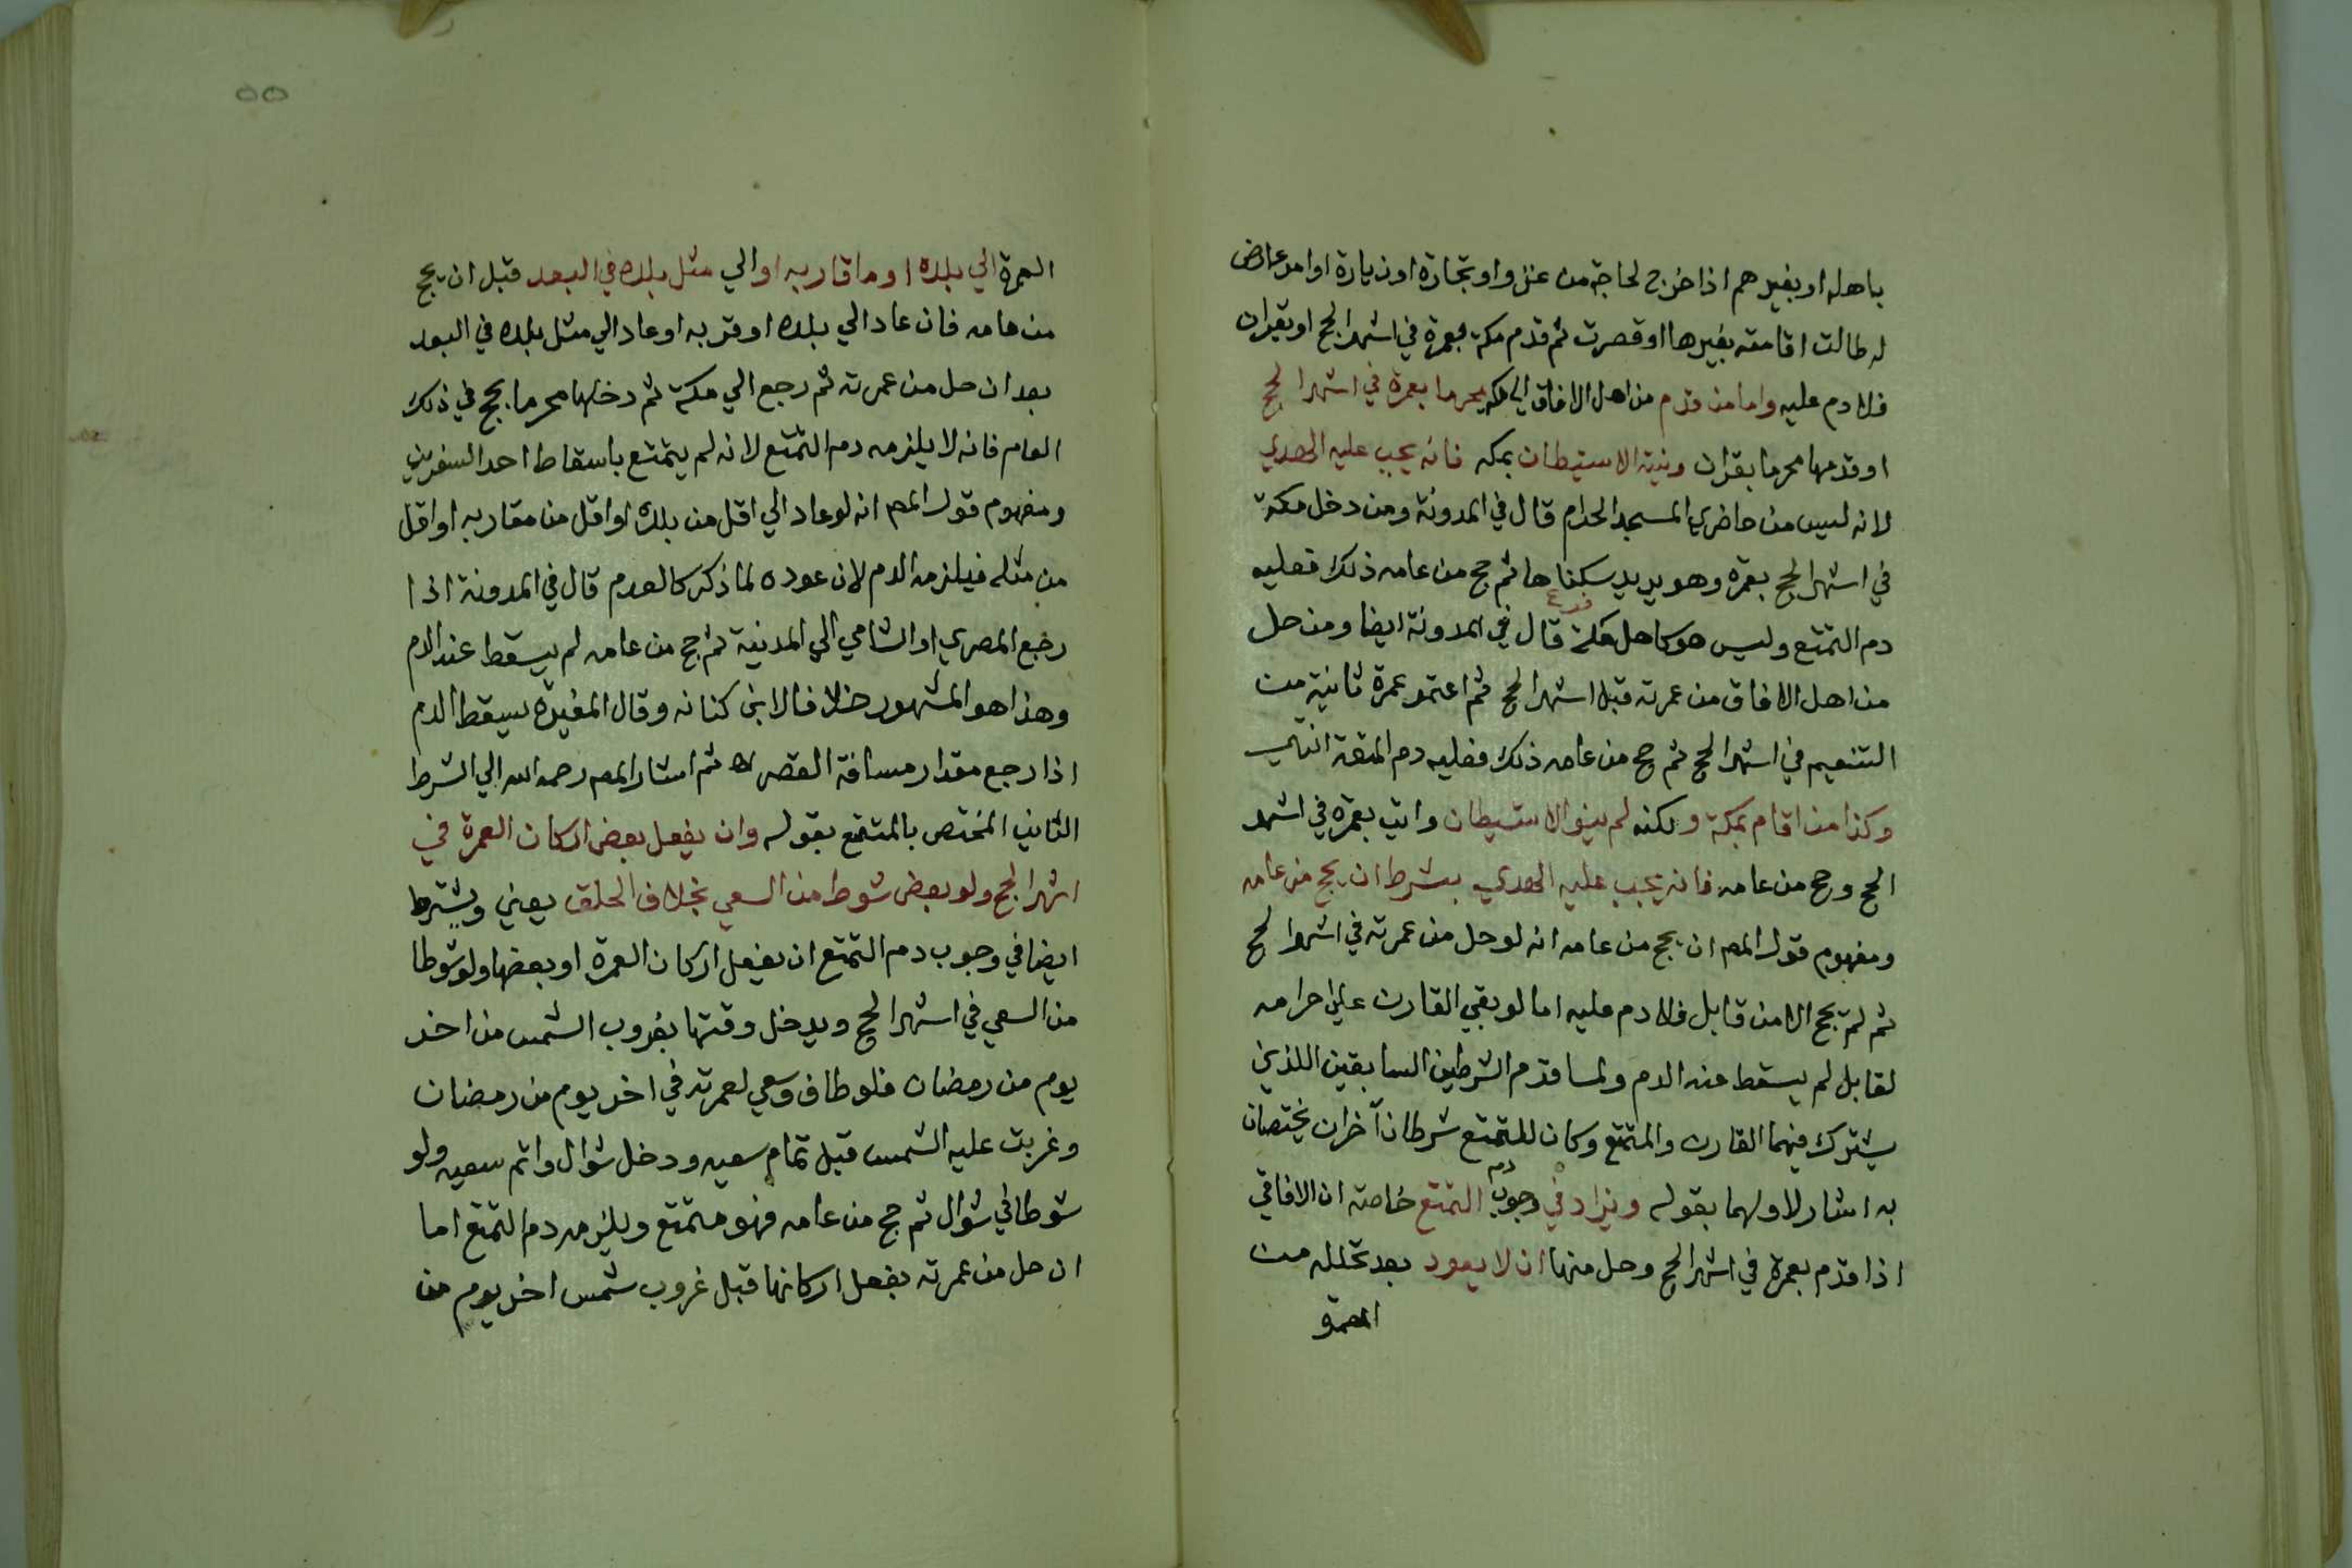 باهله او بغيرهم اذا خرج لحاجة من غزو او تجارة او زيارة او امر عارض
له طالت اقامته بغيرها او قصرت ثم قدم مكة بعمرة في اشهر الحج او بقران
فلا دم عليه واما من قدم من اهل الافاق الي مكه محرما بعمرة في اشهر الحج
او قدمها محرما بقران ونيته الاستيطان بمكه فانه يجب عليه الهدي
لانه ليس من حاضري المسجد الحرام قال في المدونة ومن دخل مكة
في اشهر الحج بعمره وهو يريد سكناها ثم حج من عامه ذلك فعليه
دم التمتع وليس هو كاهل مكة فرع قال في المدونة ايضا ومن حل
من اهل الافاق من عمرته قبل اشهر الحج ثم اعتمر عمرة ثانية من
التنعيم في اشهر الحج ثم حج من عامه ذلك فعليه دم المتعة انتهي
وكذا من اقام بمكة ولكنه لم ينو الاستيطان واتي بعمره في اشهر
الحج وحج من عامه فانه يجب عليه الهدي بشرط ان يحج من عامه
ومفهوم قول المص ان يحج من عامه انه لو حل من عمرته في اشهر الحج
ثم لم يحج الا من قابل فلا دم عليه اما لو بقي القارن علي احرامه
لقابل لم يسقط عنه الدم ولما قدم الشرطين السابقين اللذين
يشترك فيهما القارن والمتمتع وكان للتمتع شرطان آخران يختصان
به اشار لاولهما بقوله ويزاد في وجوب دم التمتع خاصة ان الافاقي
اذا قدم بعمرة في اشهر الحج وحل منها ان لا يعود بعد تحلله من
العمرة
٥٥
العمرة الي بلده او ما قاربه او الي مثل بلده في البعد قبل ان يحج
من عامه فان عاد الي بلده او قربه او عاد الي مثل بلده في البعد
بعد ان حل من عمرته ثم رجع الي مكة ثم دخلها محرما بحج في ذلك
العام فانه لا يلزمه دم التمتع لانه لم يتمتع باسقاط احد السفرين
ومفهوم قول المص انه لو عاد الي اقل من بلده او اقل من مقاربه او اقل
من مثله فيلزمه الدم لان عوده لما ذكر كالعدم قال في المدونة اذا
رجع المصري او الشامي الي المدينة ثم حج من عامه لم يسقط عنه الدم
وهذا هو المشهور خلافا لابن كنانه وقال المغيرة يسقط الدم
اذا رجع مقدار مسافة القصر اه ثم اشار المص رحمه الله الي الشرط
الثاني المختص بالمتمتع بقوله وان يفعل بعض اركان العمرة في
اشهر الحج ولو بعض شوط من السعي بخلاف الحلق يعني ويشترط
ايضا في وجوب دم التمتع ان يفعل اركان العمرة او بعضها ولو شوطا
من السعي في اشهر الحج ويدخل وقتها بغروب الشمس من اخر
يوم من رمضان فلو طاف وسعي لعمرته في اخر يوم من رمضان
وغربت عليه الشمس قبل تمام سعيه ودخل شوال واتم سعيه ولو
شوطا في شوال ثم حج من عامه فهو متمتع ويلزمه دم التمتع اما
ان حل من عمرته بفعل اركانها قبل غروب شمس اخر يوم من